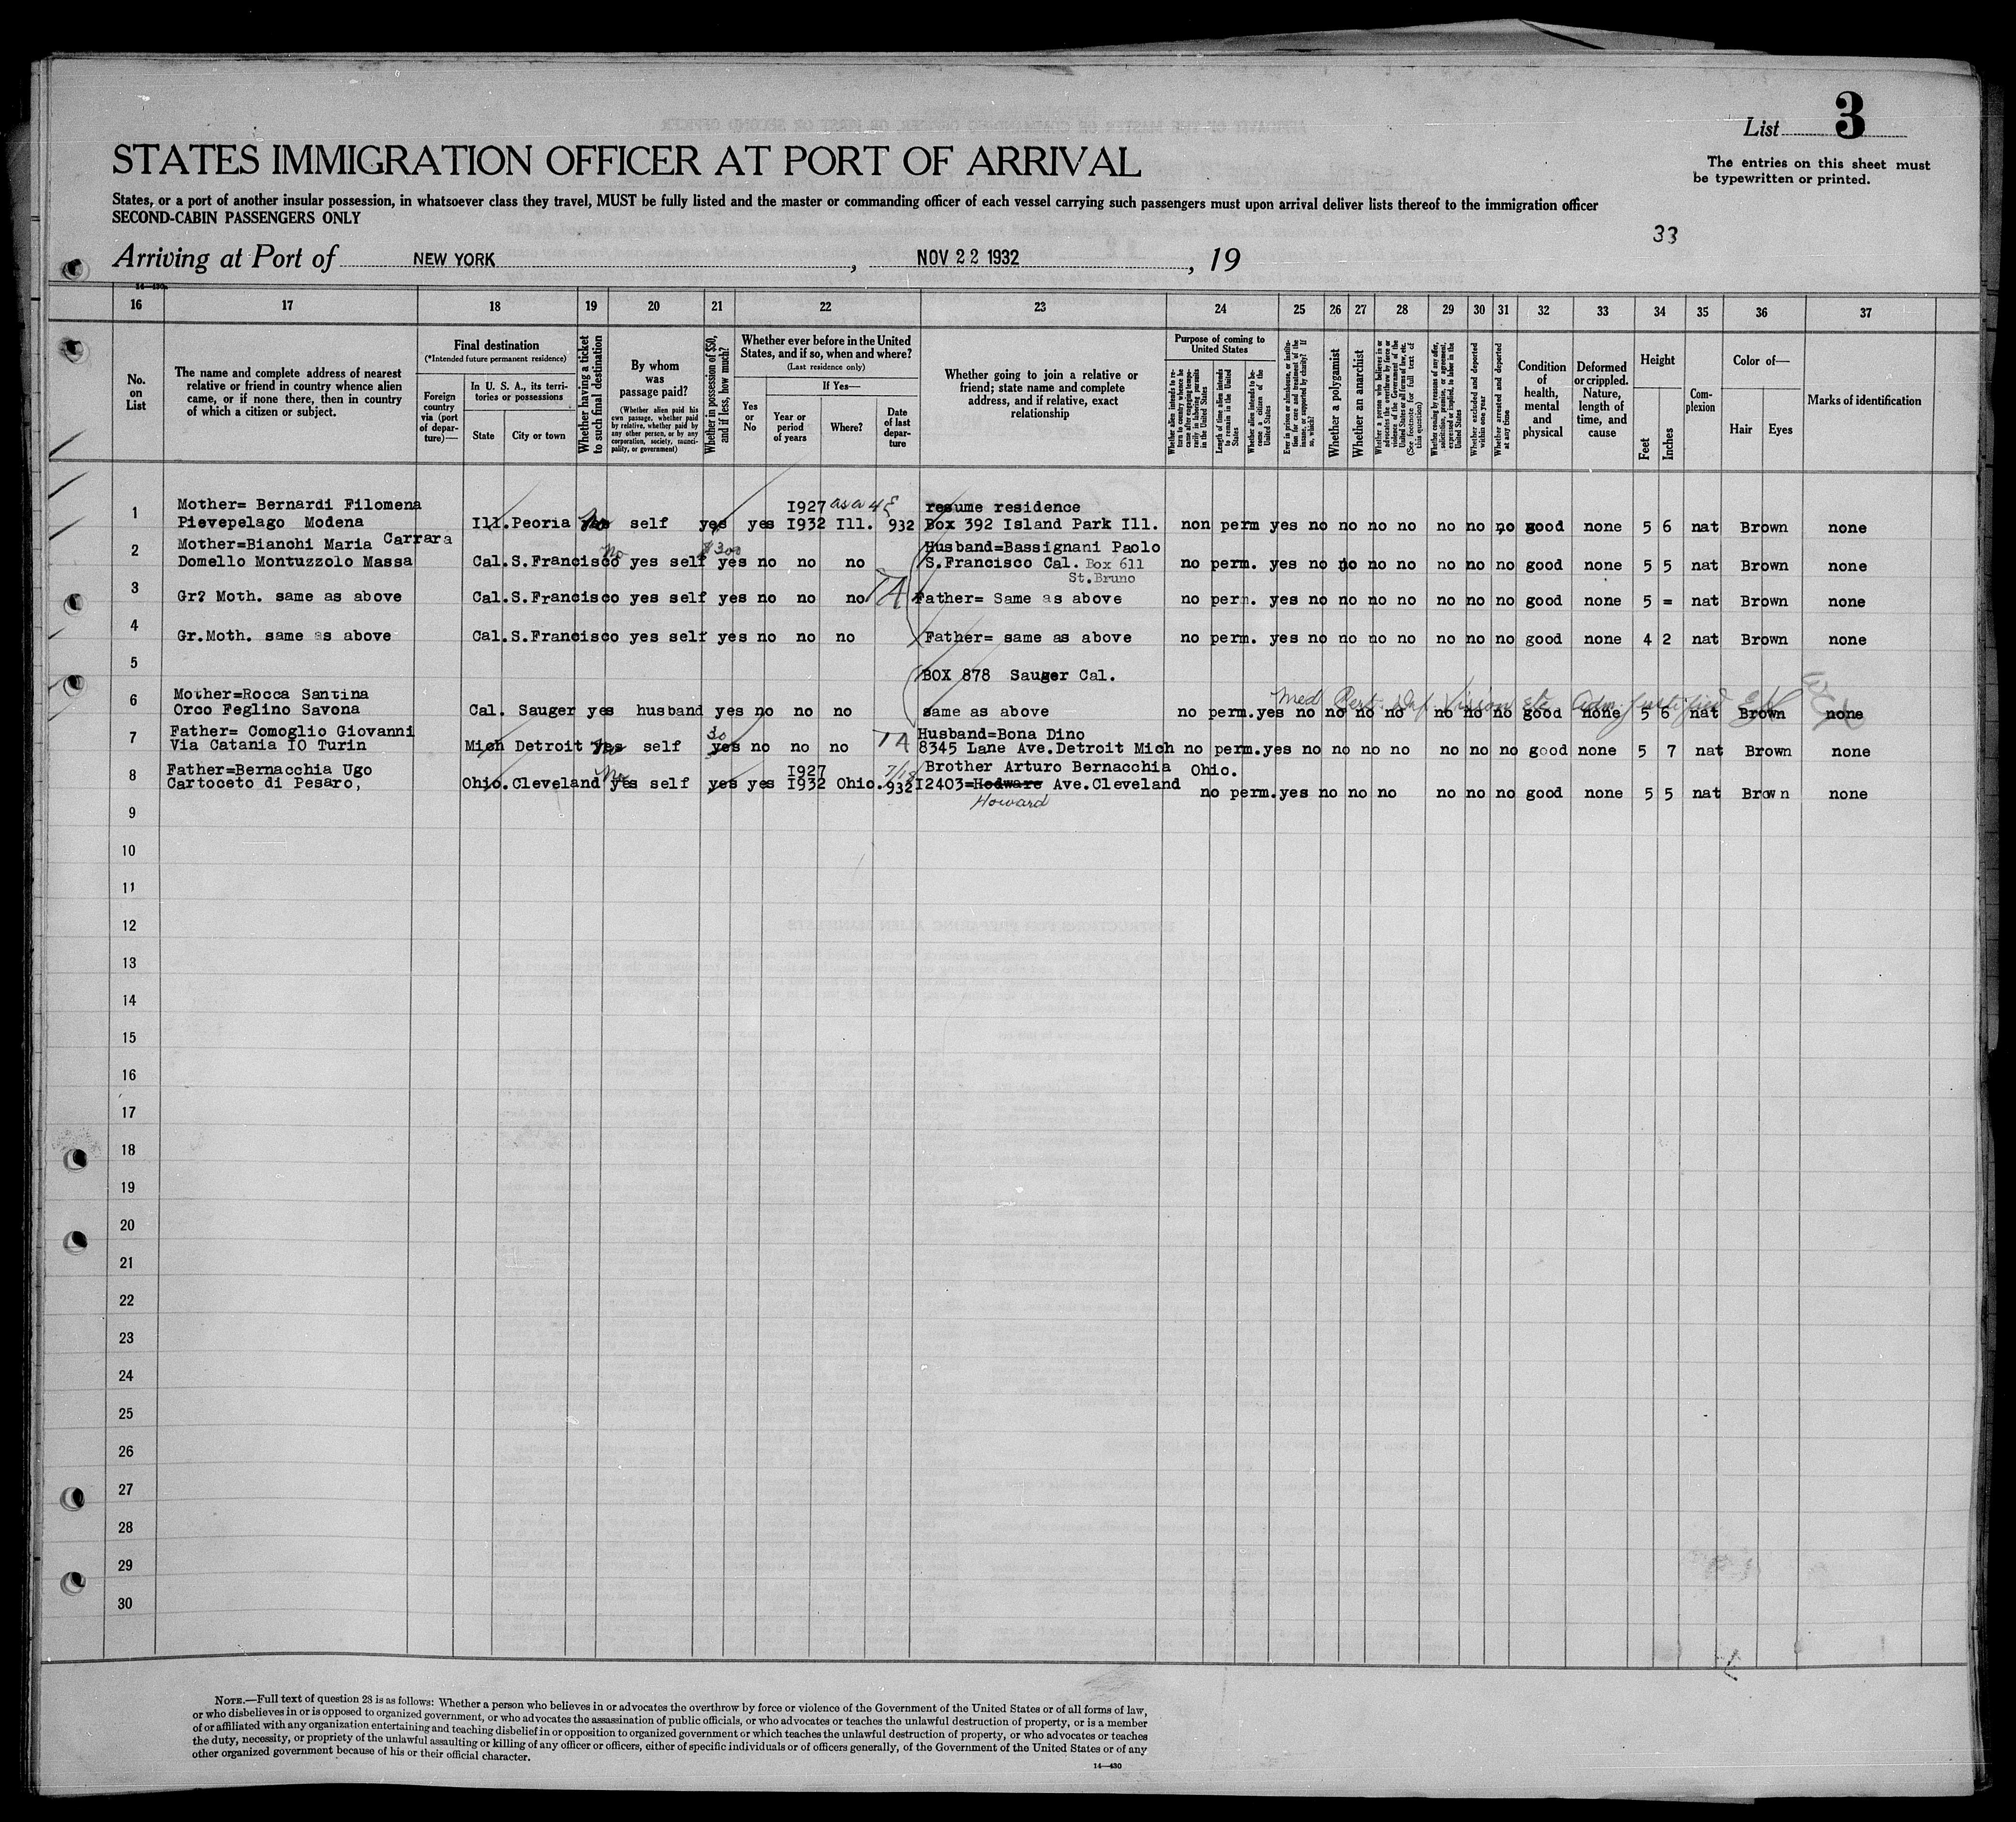 List 3
The entries on this sheet must
be typewritten or printed.
STATES IMMIGRATION OFFICER AT PORT OF ARRIVAL
States, or a port of another insular possession, in whatsoever class they travel, MUST be fully listed and the master or commanding officer of each vessel carrying such passengers must upon arrival deliver lists thereof to the immigration officer
SECOND-CABIN PASSENGERS ONLY
33
Arriving at Port of NEW YORK, NOV 22 1932, 19
14—430
16 17 18 19 20 21 22 23 24 25 26 27 28 29 30 31 32 33 34 35 36 37
No.
on
List
The name and complete address of nearest
relative or friend in country whence alien
came, or if none there, then in country
of which a citizen or subject.
Final destination
(*Intended future permanent residence)
Foreign
country
via (port
of depar-
ture)—
In U. S. A., its terri-
tories or possessions
State City or town
Whether having a ticket
to such final destination
By whom
was
passage paid?
(Whether alien paid his
own passage, whether paid
by relative, whether paid by
any other person, or by any
corporation, society, munici-
pality, or government)
Whether in possession of $50,
and if less, how much?
Whether ever before in the United
States, and if so, when and where?
(Last residence only)
Yes
or
No
If Yes—
Year or
period
of years
Where?
Date
of last
depar-
ture
Whether going to join a relative or
friend; state name and complete
address, and if relative, exact
relationship
Purpose of coming to
United States
Whether alien intends to re-
turn to country whence he
came after engaging tempo-
rarily in laboring pursuits
in the United States
Length of time alien intends
to remain in the United
States
Whether alien intends to be-
come a citizen of the
United States
Ever in prison or almshouse, or institu-
tion for care and treatment of the
insane, or supported by charity? If
so, which?
Whether a polygamist
Whether an anarchist
Whether a person who believes in or
advocates the overthrow by force or
violence of the Government of the
United States or all forms of law, etc.
(See footnote for full text of
this question)
Whether coming by reasons of any offer,
solicitation, promise, or agreement,
expressed or implied, to labor in the
United States
Whether excluded and deported
within one year
Whether arrested and deported
at any time
Condition
of
health,
mental
and
physical
Deformed
or crippled.
Nature,
length of
time, and
cause
Height
Feet Inches
Com-
plexion
Color of—
Hair Eyes
Marks of identification
Mother= Bernardi Filomena I927 as a 4 resume residence
1 Pievepelago Modena Ill. Peoria No self yes yes I932 Ill. 932 Box 392 Island Park Ill. non perm yes no no no no no no no good none 5 6 nat Brown none
Mother=Bianchi Maria Carrara No $300 Husband=Bassignani Paolo
2 Domello Montuzzolo Massa Cal. S.Francisco yes self yes no no no S.Francisco Cal. Box 611 no perm. yes no no no no no no no good none 5 5 nat Brown none
St.Bruno
3 Gr? Moth. same as above Cal. S.Francisco yes self yes no no no TA Father= Same as above no perm. yes no no no no no no no good none 5 = nat Brown none
4 Gr.Moth. same as above Cal. S.Francisco yes self yes no no no Father= same as above no perm. yes no no no no no no no good none 4 2 nat Brown none
5 BOX 878 Sauger Cal.
Mother=Rocca Santina Med
6 Orco Feglino Savona Cal. Sauger yes husband yes no no no same as above no perm. yes no no no no no no no good none 5 6 nat Brown none
Father= Comoglio Giovanni 30 Husband=Bona Dino
7 Via Catania IO Turin Mich Detroit yes self yes no no no TA 8345 Lane Ave. Detroit Mich no perm. yes no no no no no no no good none 5 7 nat Brown none
Father=Bernacchia Ugo No I927 7/18 Brother Arturo Bernacchia Ohio.
8 Cartoceto di Pesaro, Ohio. Cleveland yes self yes yes I932 Ohio. 932 I2403=Hodware Ave. Cleveland no perm. yes no no no no no no good none 5 5 nat Brown none
Howard
9
10
11
12
13
14
15
16
17
18
19
20
21
22
23
24
25
26
27
28
29
30
NOTE.—Full text of question 28 is as follows: Whether a person who believes in or advocates the overthrow by force or violence of the Government of the United States or of all forms of law,
or who disbelieves in or is opposed to organized government, or who advocates the assassination of public officials, or who advocates or teaches the unlawful destruction of property, or is a member
of or affiliated with any organization entertaining and teaching disbelief in or opposition to organized government or which teaches the unlawful destruction of property, or who advocates or teaches
the duty, necessity, or propriety of the unlawful assaulting or killing of any officer or officers, either of specific individuals or of officers generally, of the Government of the United States or of any
other organized government because of his or their official character.
14—430